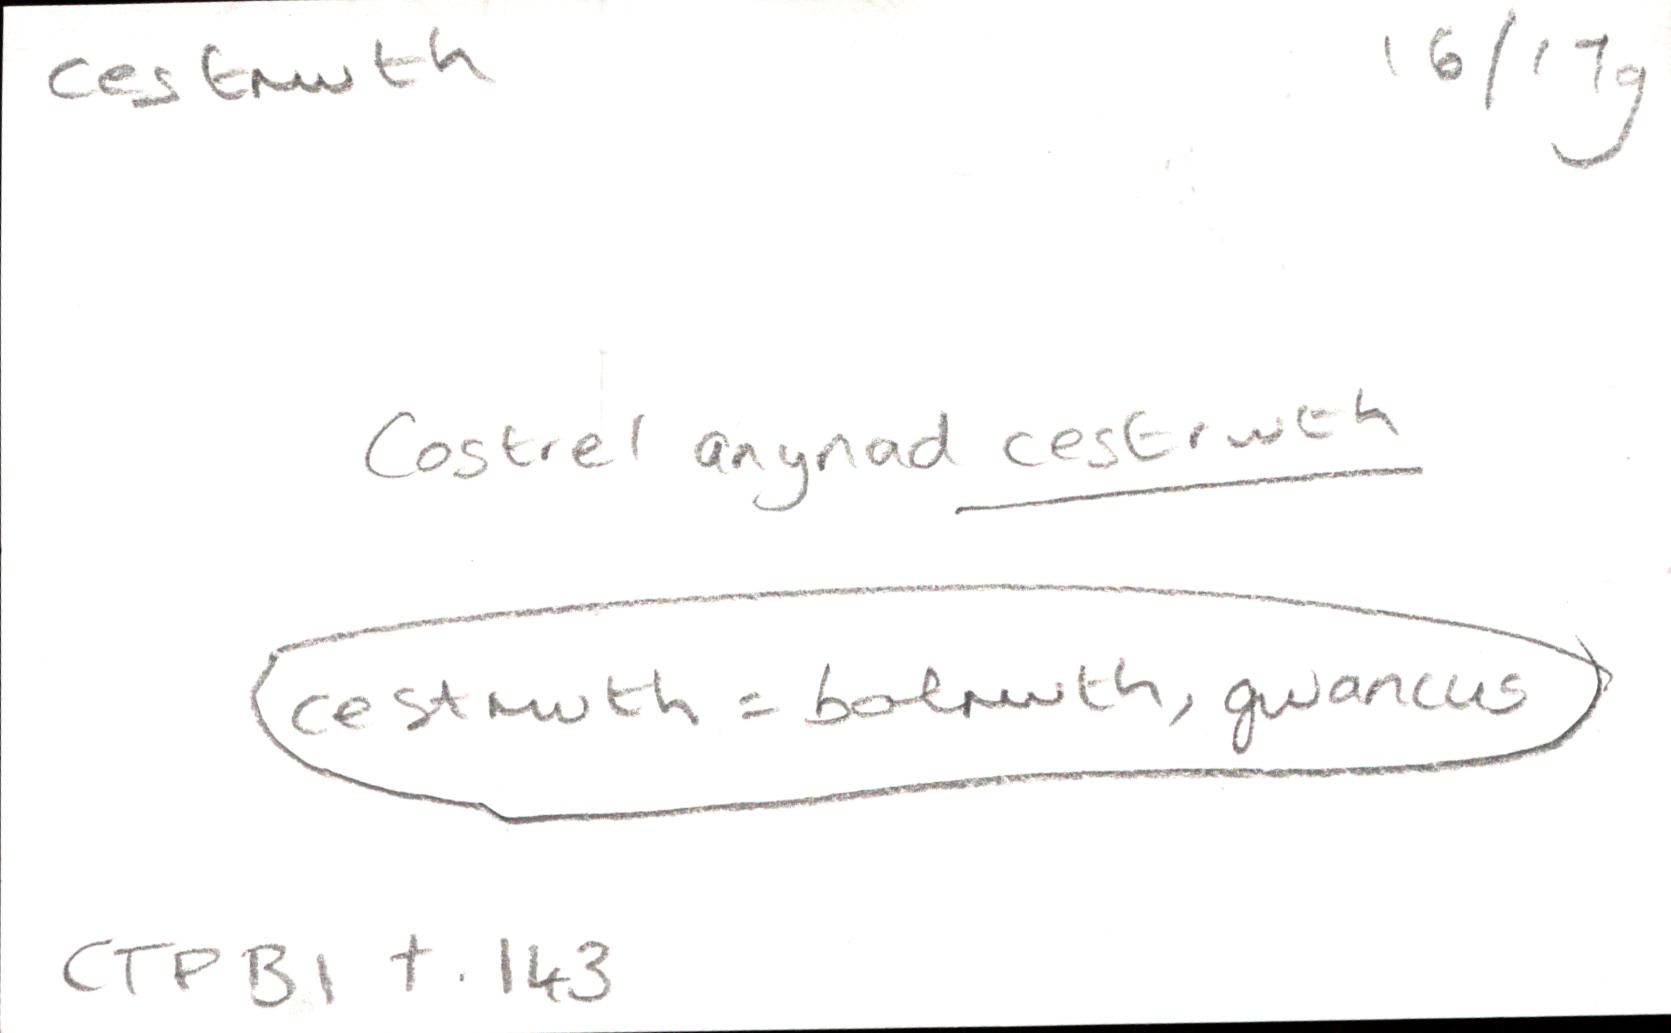 cestrwth 16/17g
Costrel anynad cestrwth
cestrwth = bolrwth, gwancus
CTPB1 t. 143